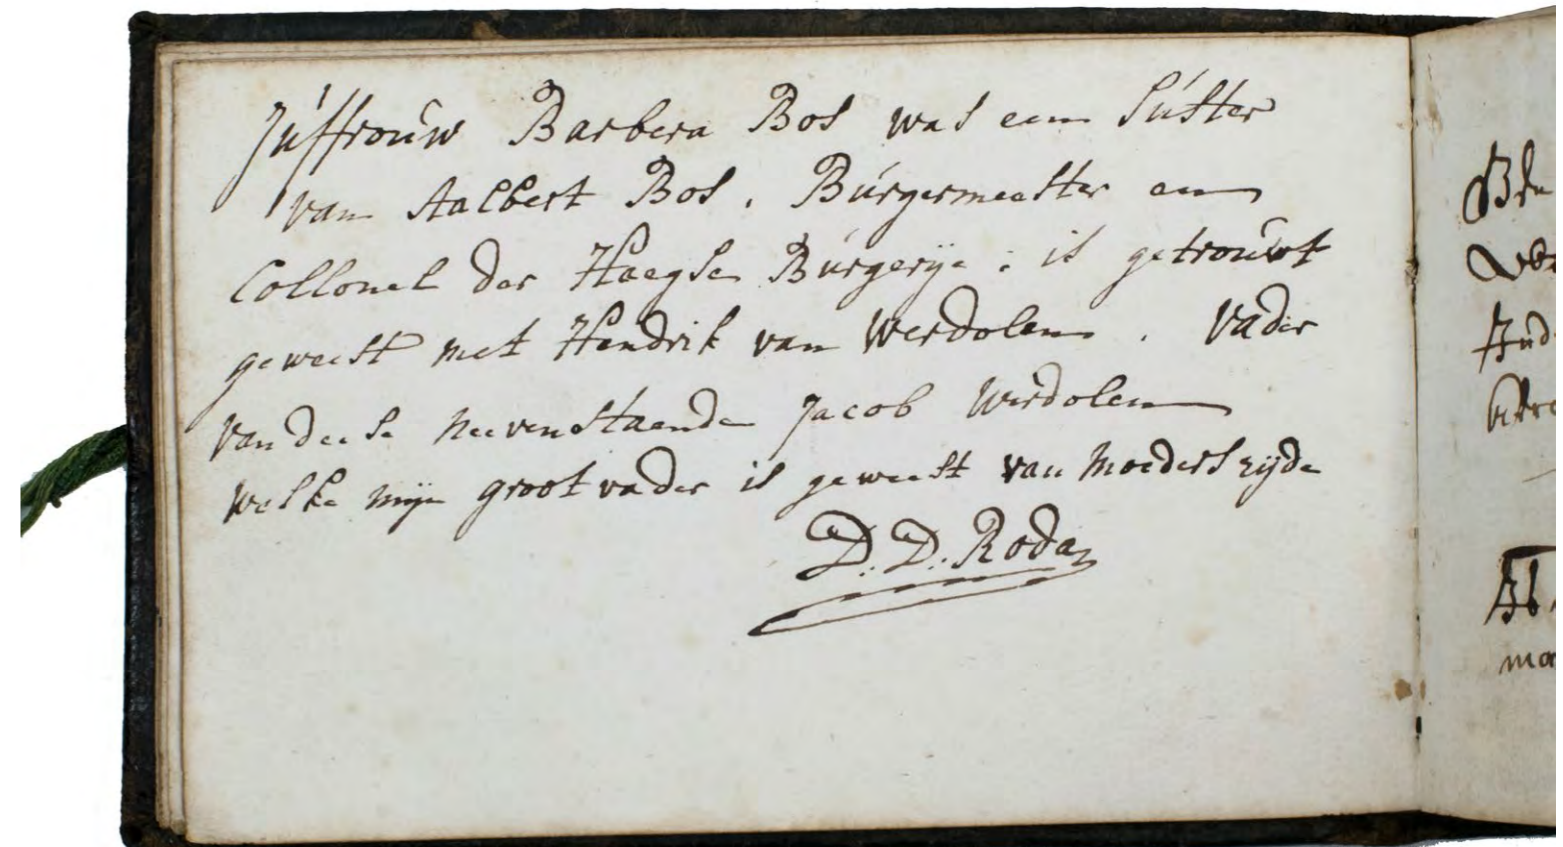 Juffrouw Barbera Bos was een Suster
van Aalbert Bos, Burgermeester en
Collonel der Haegse Burgerije; is getrouwt
geweest met Hendrik van Werdolen, vader
van deese neevenstaende Jacob Werdolen
welke mijn groot vader is geweest van moeders zijde
D. D. Roda